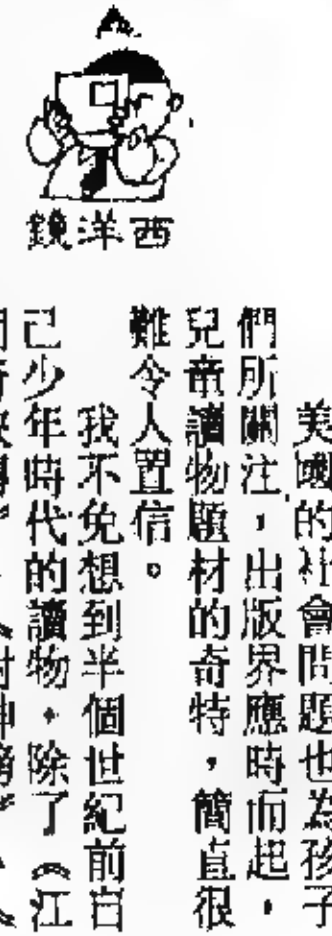 西洋鏡
美國的社會問題也為孩子
們所關注，出版界應時而起，
兒童讀物題材的奇特，簡直很
難令人置信。
我不免想到半個世紀前自
己少年時代的讀物。除了《江